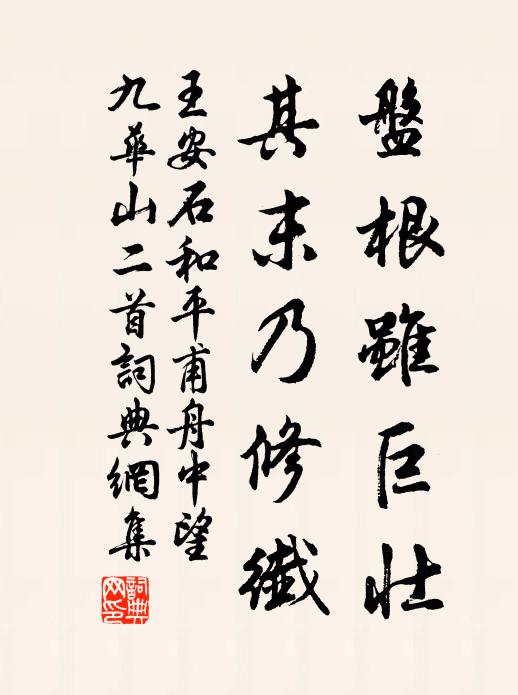 盤根雖巨壯
其末乃修纖
王安石和平甫舟中望
九華山二首詞典網集
詞典網印